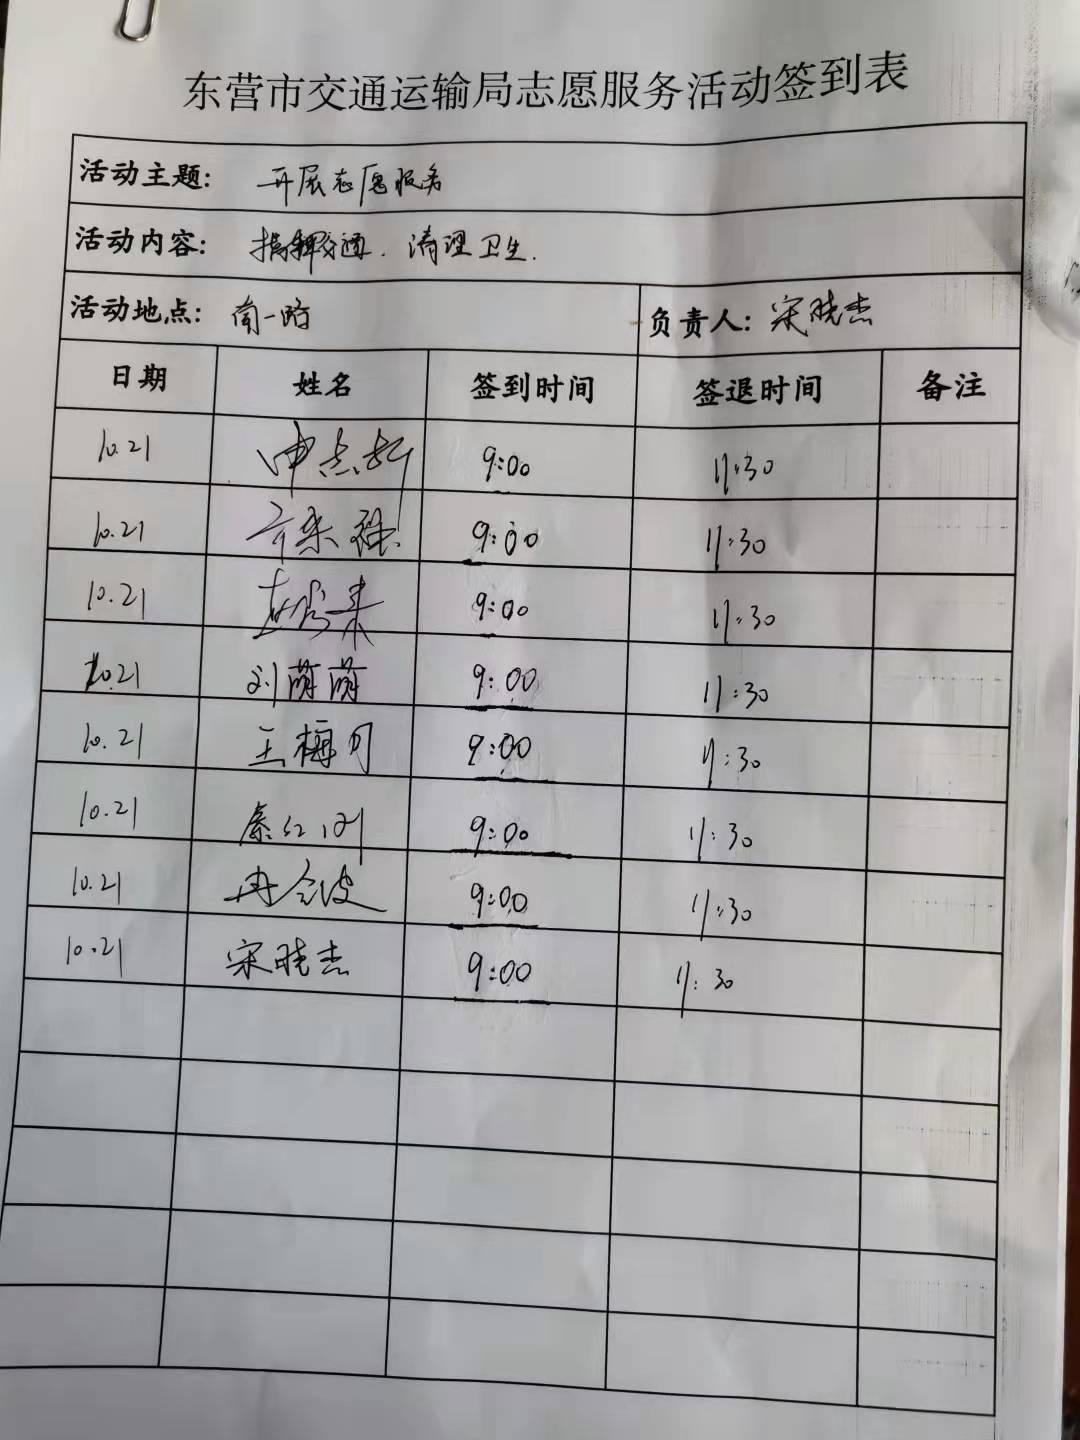 东营市交通运输局志愿服务活动签到表
活动主题: 开展志愿服务
活动内容: 指挥交通. 清理卫生.
活动地点: 南一路 负责人: 宋晓杰
日期 姓名 签到时间 签退时间 备注
10.21 申志新 9:00 11:30
10.21 9:00 11:30
10.21 9:00 11:30
10.21 刘萌萌 9:00 11:30
10.21 王梅可 9:00 11:30
10.21 9:00 11:30
10.21 冉令波 9:00 11:30
10.21 宋晓杰 9:00 11:30